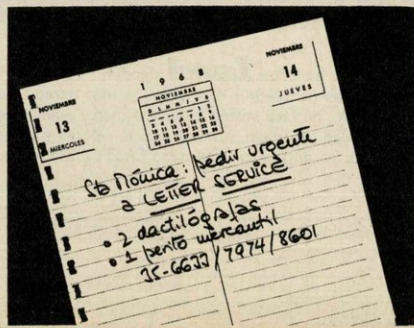 1968
NOVIEMBRE
13
MIERCOLES
NOVIEMBRE
D L M M J V S
NOVIEMBRE
14
JUEVES
Sta Mónica: pedir urgente
a LETTER SERVICE
• 2 dactilógrafas
• 1 perito mercantil
35-6633/7974/8601